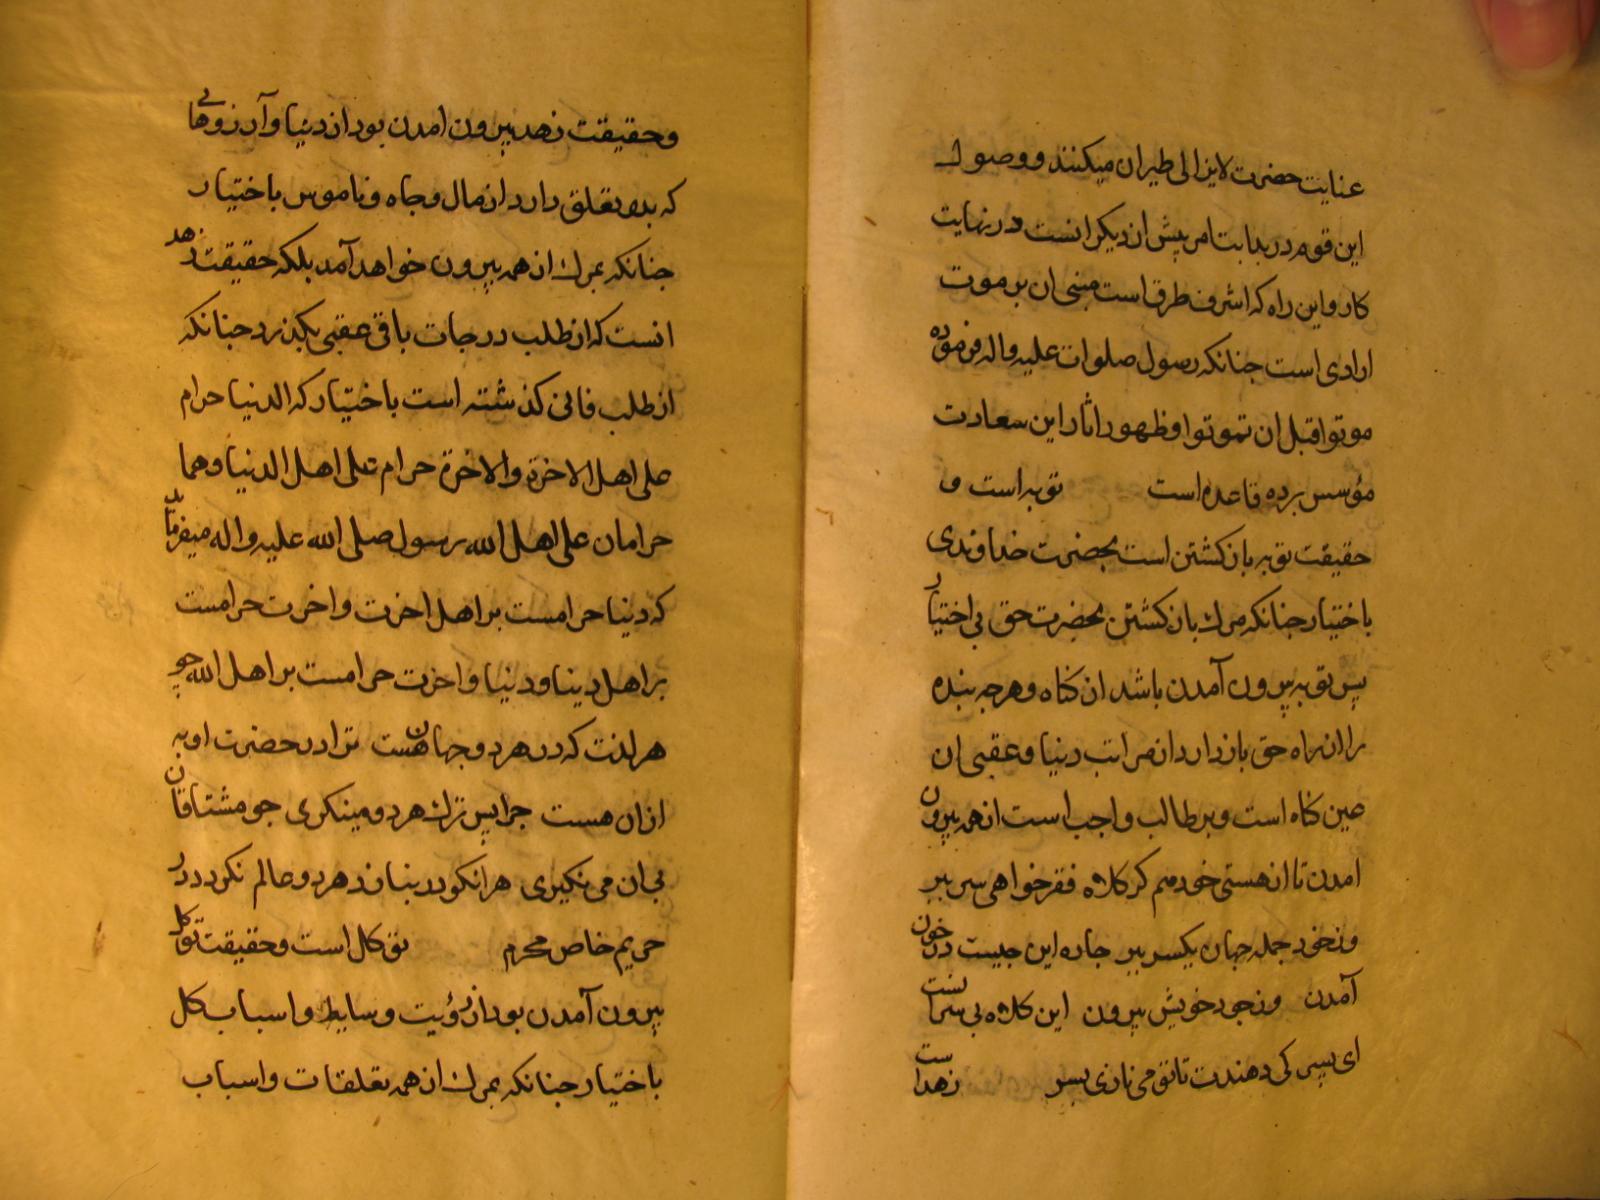 عنایت حضرت لایزالی طیران میکنند و وصول
این قوم در بدایت امر پیش از دیکرانست در نهایت
کار و این راه که اشرف طرق است مبنی ان بر موت
ارادی است جنانکه رسول صلوات علیه واله فرموده
موتوا قبل ان تموتوا و ظهور اثار این سعادت
مؤسس بر ده قاعده است توبه است و
حقیقت توبه باز کشتن است بحضرت خداوندی
باختیار جنانکه مرک باز کشتن بحضرت حق بی اختیار
پس توبه بیرون آمدن باشد از کناه و هر جه بنده
را از راه حق باز دارد از مراتب دنیا و عقبی ان
عین کناه است و بر طالب واجب است از همه بیرون
امدن تا از هستی خود مم کر کلاه فقر خواهی سر ببر
وز خود جمله جهان یکسر ببر جاره این جیست در خون
آمدن وز جود خویش بیرون این کلاه بی سرانست
ای پسر کی دهندت تا تو می نازی بسر زهد است
و حقیقت زهد بیرون امدن بود از دنیا و آرزوهایی
که بدو تعلق دارد از مال و جاه و ناموس باختیار
جنانکه بمرک از همه بیرون خواهد آمد بلکه حقیقت زهد
انست که از طلب درجات باقی عقبی بکذرد جنانکه
از طلب فانی کذشته است باختیار که الدنیا حرام
علی اهل الاخرة والاخرة حرام علی اهل الدنیا وهما
حرامان علی اهل الله رسول صلی الله علیه واله میفرماید
که دنیا حرامست بر اهل اخرت و اخرت حرامست
بر اهل دینا و دنیا و اخرت حرامست بر اهل الله جو
هر لذت که در هر دو جهان هست ترا در حضرت او به
از ان هست جرا پس ترک هر دو مینکری جو مشتاقان
پی ان می نکیری هر انکو در بنازد هر دو عالم نکردد در
حریم خاص محرم توکل است و حقیقت توکل
بیرون آمدن بود از رؤیت وسایط و اسباب کل
باختیار جنانکه بمرک از همه تعلقات و اسباب